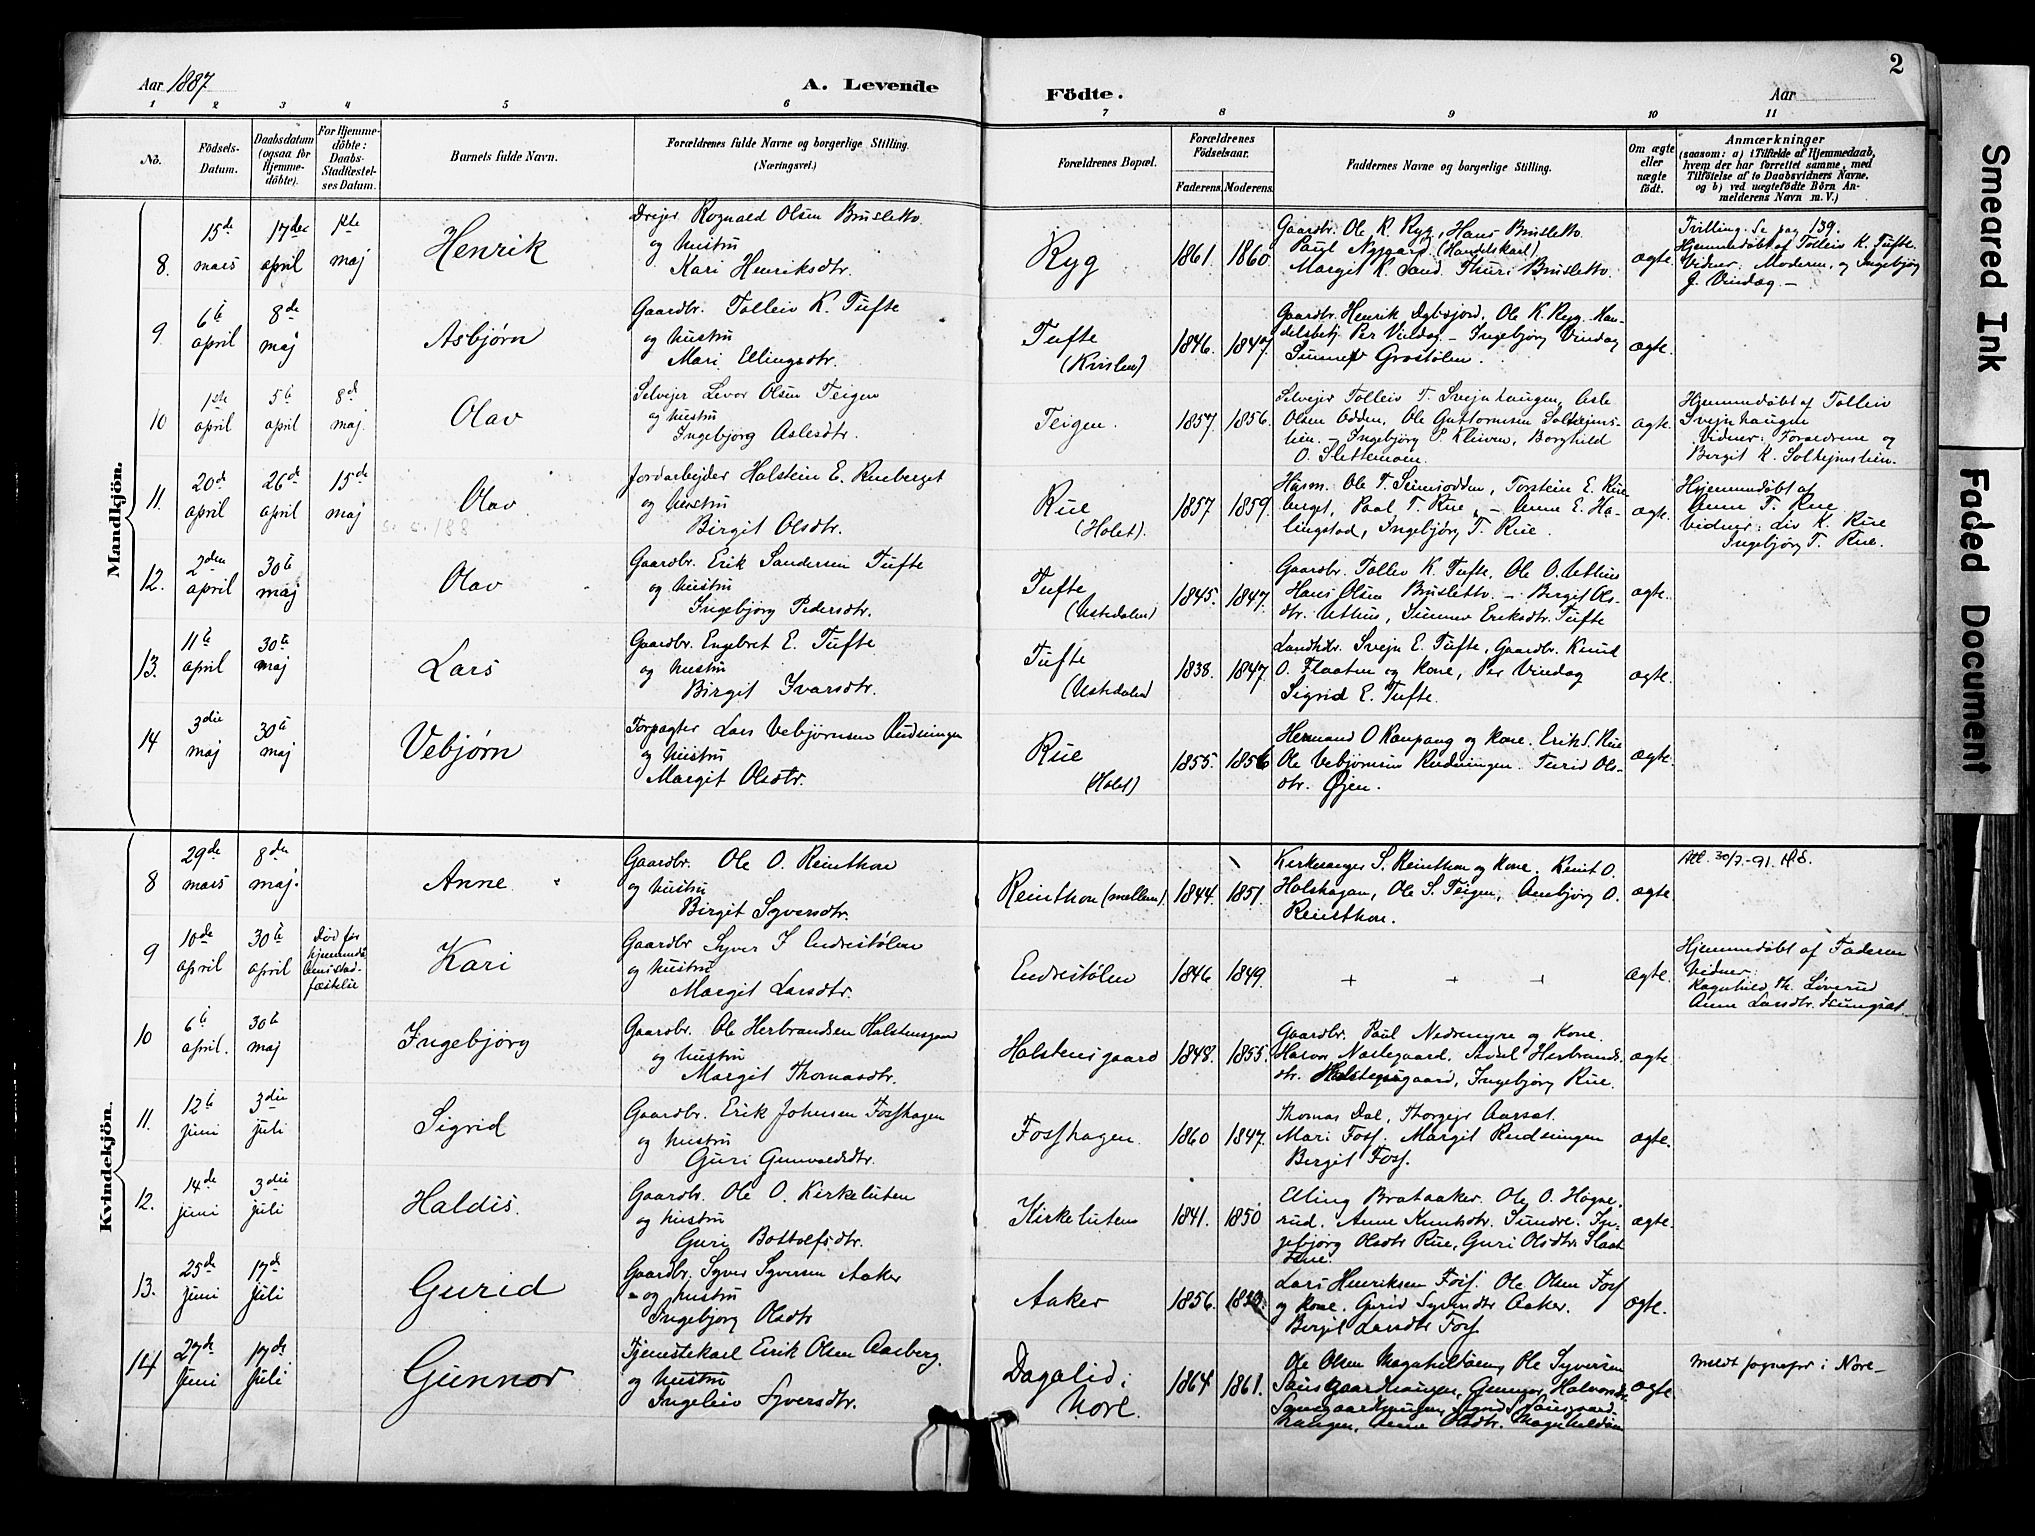 2
Aar 1887.
A. Levende
Födte.
Aar
1 2 3 4 5 6 7 8 9 10 11
No.
Födsels-Datum.
Daabsdatum (ogsaa for Hjemmedöbte).
For Hjemmedöbte: Daabs-Stadfæstelses Datum.
Barnets fulde Navn.
Forældrenes fulde Navne og borgerlige Stilling.
(Næringsvei.)
Forældrenes Bopæl.
Forældrenes Födselsaar.
Faderens. Moderens.
Faddernes Navne og borgerlige Stilling.
Om ægte eller uægte födt.
Anmærkninger
(saasom: a) i Tilfælde af Hjemmedaab, hvem der har forrettet samme, med Tilföielse af to Daabsvidners Navne, og b) ved uægtefödte Börn Anmelderens Navn m. V.)
Mandkjön.
8. 15de mars 17de april 1ste maj Henrik
Drejer Rognald Olsen Brusletto
og hustru
Kari Henriksdtr.
Ryg 1861. 1860.
Gaardbr. Ole K. Ryg, Hans Brusletto
Paul Nygaard (Handelskarl)
Margit K. Sand. Thuri Brusletto
ægte.
Tvilling. Se pag 139.
Hjemmedøbt af Tolleiv K. Tufte.
Vidner: Moderen, og Ingebjørg
J. Vindag.
9 6te april 8de maj Asbjørn
Gaardbr. Tolleiv K. Tufte
og hustru
Mari Ellingsdtr.
Tufte 1846. 1847.
Gaardbr. Henrik Ole K. Ryg. Han-
delsbetj. Per Vindag – Ingebjørg Vindag
Grostølen.
ægte.
10 1ste april 5te april 8de maj. Olav
Selvejer Levor Olsen Teigen
og hustru
Ingebjørg Aslesdtr.
Teigen. 1857. 1856.
Selvejer Tolleiv T. Svejnhaugen, Asle
Olsen Odden, Ole Guttormsen
lien. – Ingebjørg P. Kleven, Borghild
O. Slettemoen.
ægte.
Hjemmedøbt af Tolleiv
Svejnhaugen
Vidner: Forældrene og
Birgit K.
11. 20de april 26de april 15de maj Olav
Jordarbejder Halstein E. Rueberget
og hustru
Birgit Olsdtr.
Rue (Holet). 1857 1859.
Husm. Ole T. Torstein E. Rue
berget, Paal T. Rue, – Anne E. Ha-
lingstad, Ingebjørg T. Rue.
ægte.
Hjemmedøbt af
Anne T. Rue.
Vidner: Liv K. Rue
Ingebjørg T. Rue.
12. 2den april 30te maj Olav
Gaardbr. Erik Sandersen Tufte
og hustru
Ingebjørg Pedersdtr.
Tufte (Ustedalen) 1845. 1847.
Gaardbr. Tollev K. Tufte, Ole O. Uthus
Hans Olsen Brusletto. – Birgit Ols-
dtr. Uthus, Sunnev Eriksdtr. Tufte
ægte.
13. 11te april 30te maj Lars
Gaardbr. Engebret E. Tufte
og hustru
Birgit Ivarsdtr.
Tufte (Ustedalen) 1838. 1847.
Landhdr. Svejn E. Tufte, Gaardbr. Knud
O. Flaaten og kone, Per Vindag
Sigrid E. Tufte.
ægte.
14 3die maj 30te maj Vebjørn
Forpagter Lars Vebjørnsen Rudningen
og hustru
Margit Olsdtr.
Rue (Holet) 1855. 1856
Hermand O Kaupang og kone. Erik S. Rue
Ole Vebjørnsen Rudningen. Turid Ols-
dtr. Øjen.
ægte.
Kvindekjön.
8 29de mars 8de maj. Anne
Gaardbr. Ole O. Reinthon
og hustru
Birgit Syversdtr.
Reinthon (mellem). 1844. 1851.
Kirkesanger S. Reinthon og kone. Knut O.
Holshagen, Ole S. Teigen, Aenbjørg O.
Reinthon.
ægte
Att. 30/7-91. HS.
9 10de april 30te april Død før hjemmed. Kari
Gaardbr Syver S Endrestølen
og hustru
Margit Larsdtr.
Endrestølen 1846 1849.
+ + +
ægte.
Hjemmedøbt af Faderen
Vidner:
Ragnhild Th. Løverud
Anne Larsdtr.
10 6te april. 30te maj Ingebjørg
Gaardbr. Ole Herbrandsen Halstensgaard
og hustru
Margit Thomasdtr.
Halstensgaard 1848. 1855.
Gaardbr. Paul Nedremyre og kone.
Halvor Næslegaard. Sidsel Herbrands-
dtr. Halstensgaard, Ingebjørg Rue.
ægte
11. 12te juni 3die juli Sigrid
Gaardbr. Erik Johnsen Fosshagen
og hustru
Guri Gunvaldsdtr.
Fosshagen. 1860 1847.
Thomas Dal, Thorgejr Aarset.
Mari Foss. Margit Rudningen
Birgit Foss.
ægte.
12. 14de juni 3die juli Haldis.
Gaardbr. Ole O. Kirkeluten
og hustru
Guri Bottolfsdtr.
Kirkeluten 1841. 1850
Elling Brataaker. Ole O. Høgne-
rud. Anne Knutsdtr. Sundre. In-
gebjørg Olsdtr Rue, Guri Olsdtr.
ægte.
13. 25de juni 17de juli Gurid
Gaardbr. Syver Syversen Aaker
og hustru
Ingebjørg Olsdtr
Aaker 1856.
Lars Henriksen Foss. Ole Olsen Foss
og kone. Gurid Syversdtr Aaker.
Birgit Larsdtr Foss
ægte.
14 27de juni 17de juli Gunnor
Tjenestekarl Eirik Olsen Aasberg.
og hustru
Ingeleiv Syversdtr.
Dagalid i Nore. 1864 1861.
Ole Olsen Ole Syversen
Gunnor Halvorsdtr.
Anne Olsdtr.
ægte
meldt sognepr i Nore –
Smeared Ink
Faded Document